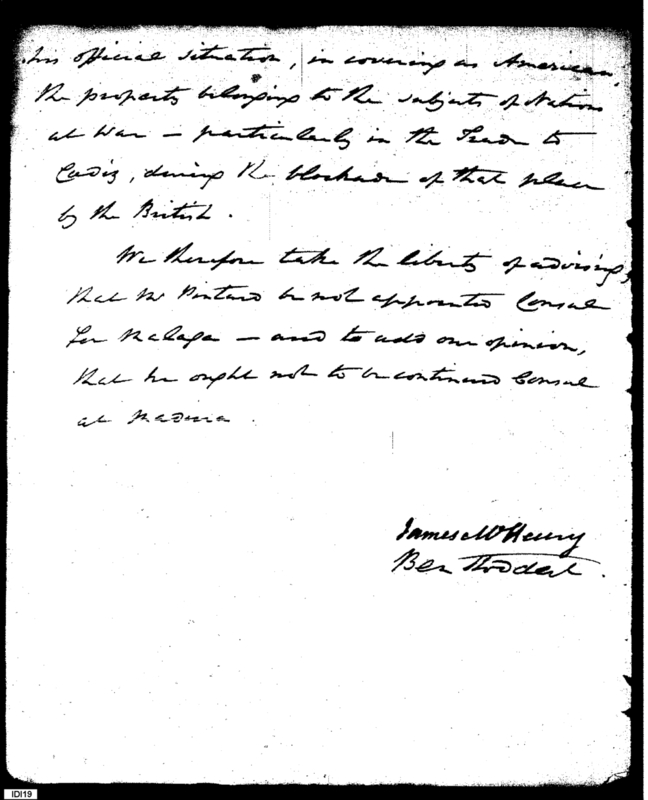 his official situation, in covering as American,
the property belonging to the subjects of Nations
at War – particularly in the Trade to
Cadiz, during the blockade of that place
by the British.
We therefore take the liberty of advising,
that Mr Pintard be not appointed Consul
for Malaga – and to add our opinion,
that he ought not to be continued Consul
at Madeira.
James McHenry
Ben Stoddert.
IDI19